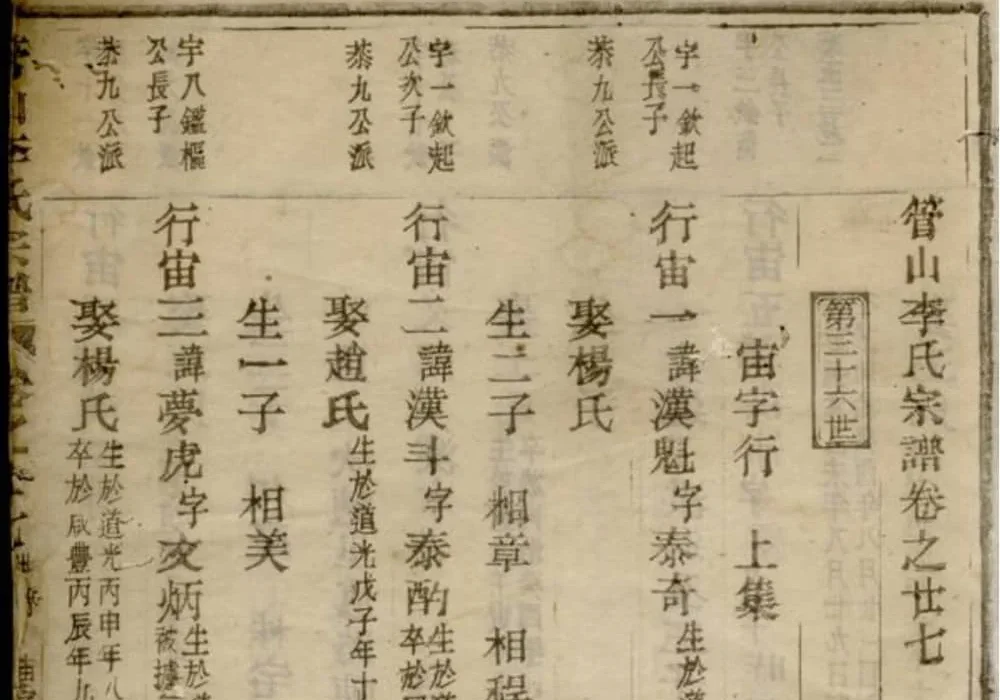 管山李氏宗譜卷之廿七
第三十六世
宙字行 上集
字一欽起
公長子
九公派
行宙一諱漢魁字泰奇
生於
娶楊氏
生二子 相章 相程
字一欽起
公次子
九公派
行宙二諱漢斗字泰酌
生於
卒於
娶趙氏
生於道光戊子年十
生一子 相美
字八鑑樞
公長子
九公派
行宙三諱夢虎字文炳
生於
被擄
娶楊氏
生於道光丙申年八
卒於咸豐丙辰年九
李氏宗譜